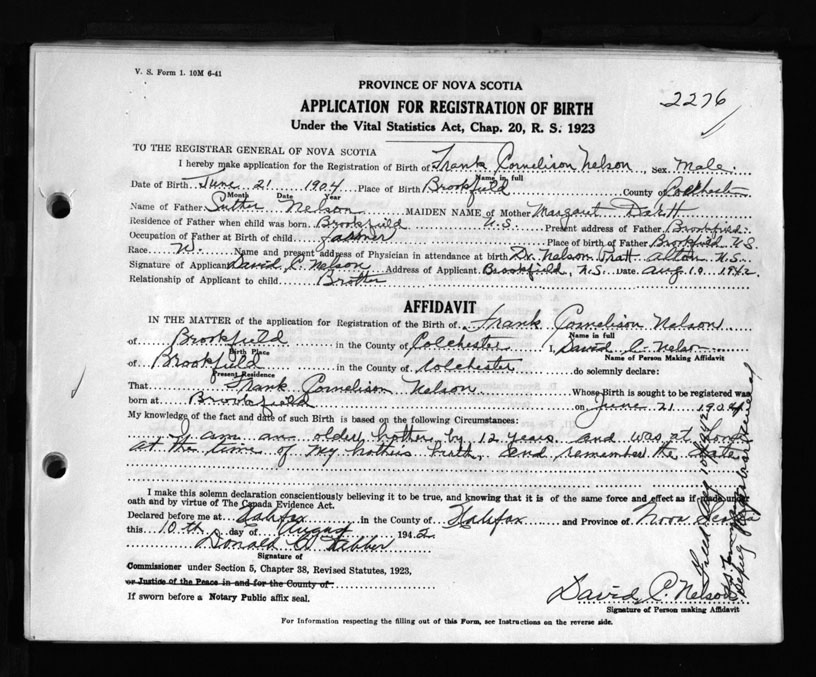 V. S. Form 1. 10M 6-41
2276
PROVINCE OF NOVA SCOTIA
APPLICATION FOR REGISTRATION OF BIRTH
Under the Vital Statistics Act, Chap. 20, R. S. 1923
TO THE REGISTRAR GENERAL OF NOVA SCOTIA
I hereby make application for the Registration of Birth of Frank Cornelison Nelson, Sex Male.
Name in full
Date of Birth June 21 1904 Place of Birth Brookfield County of Colchester
Month Date Year
Name of Father Nelson MAIDEN NAME of Mother Margaret
Residence of Father when child was born Brookfield N.S. Present address of Father Brookfield
Occupation of Father at Birth of child farmer Place of birth of Father Brookfield N.S.
Race W. Name and present address of Physician in attendance at birth Dr. Nelson Pratt N.S.
Signature of Applicant David C. Nelson Address of Applicant Brookfield, N.S. Date Aug 10 1942.
Relationship of Applicant to child Brother
AFFIDAVIT
IN THE MATTER of the application for Registration of the Birth of Frank Cornelison Nelson
Name in full
of Brookfield in the County of Colchester I, David C. Nelson
Birth Place Name of Person Making Affidavit
of Brookfield in the County of Colchester do solemnly declare:
Present Residence
That Frank Cornelison Nelson Whose Birth is sought to be registered was
born at Brookfield on June 21 1904
My knowledge of the fact and date of such Birth is based on the following Circumstances:
I am an older brother by 12 years and was at home
at the time of my brothers birth, and remember the date.
I make this solemn declaration conscientiously believing it to be true, and knowing that it is of the same force and effect as if made under
oath and by virtue of The Canada Evidence Act.
Declared before me at Halifax in the County of Halifax and Province of Nova Scotia
this 10th day of August 1942
Donald
Signature of
Commissioner under Section 5, Chapter 38, Revised Statutes, 1923,
or Justice of the Peace in and for the County of
If sworn before a Notary Public affix seal.
David C. Nelson
Signature of Person making Affidavit
For Information respecting the filling out of this Form, see Instructions on the reverse side.